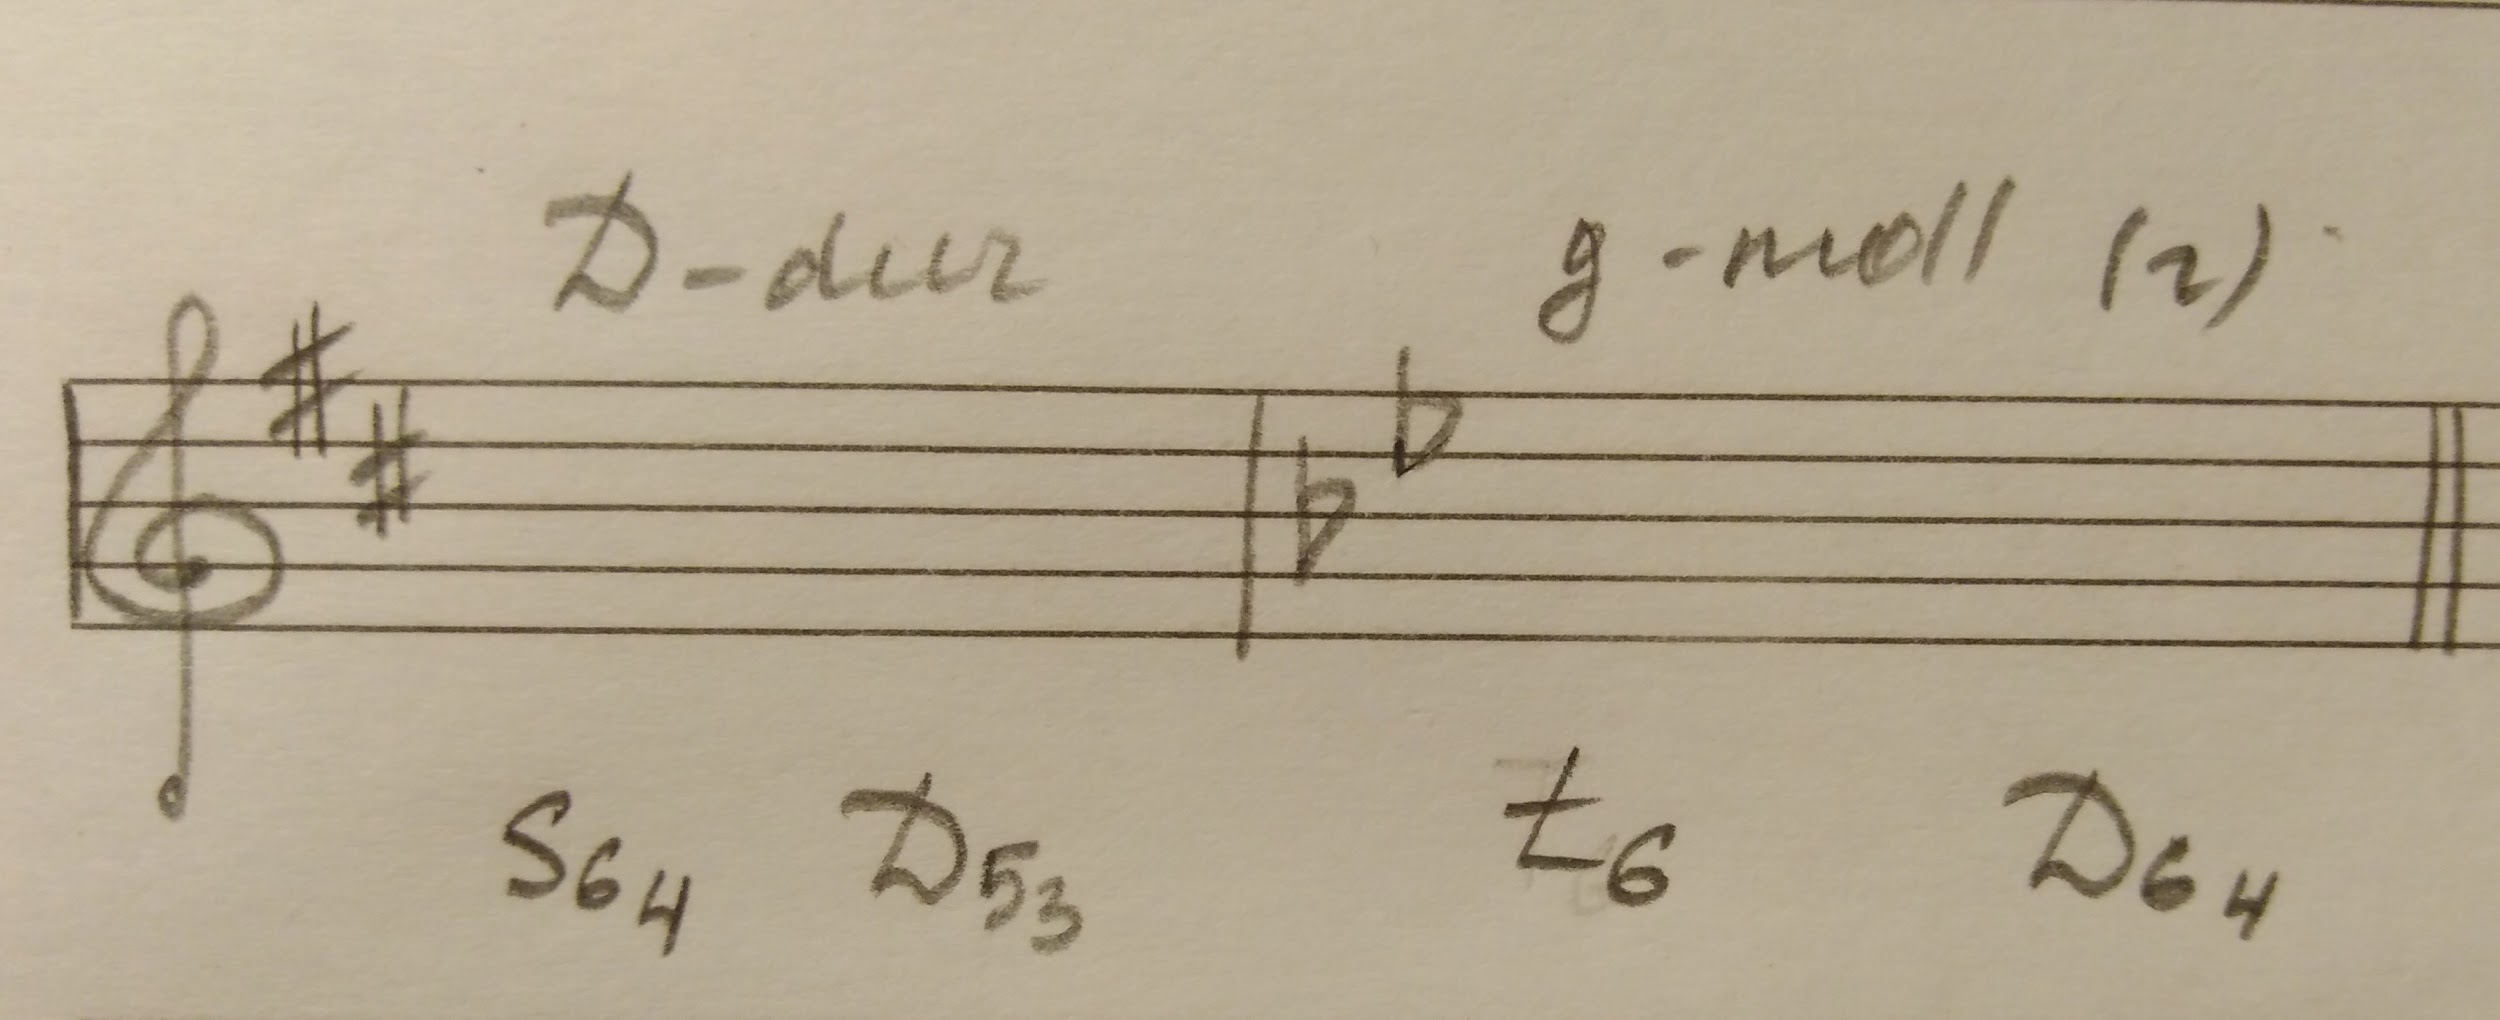 D-dur g-moll (г)
S64 D53 t6 D64